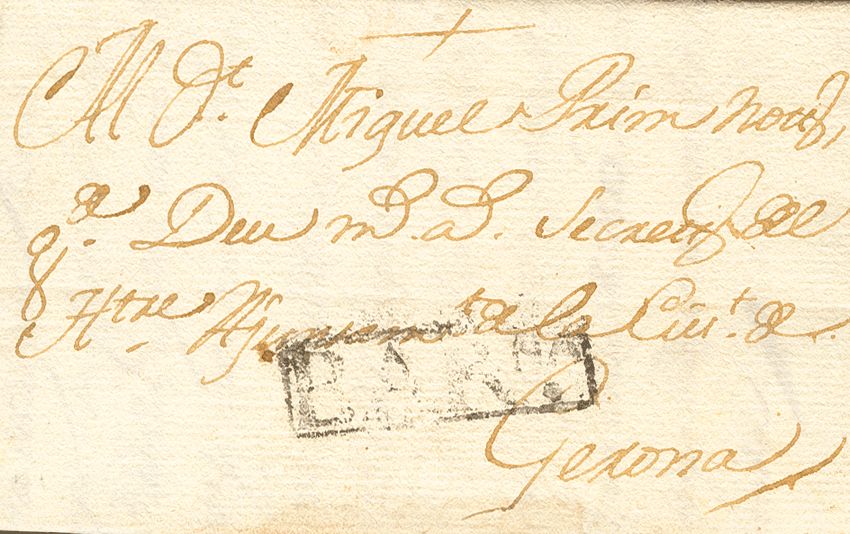 Al Dr. Miguel Prim Nott,
qe. Deu ms. as. Secreto. del
Iltre Ajuntamt. de la Ciut. de
BARNA.
Gerona